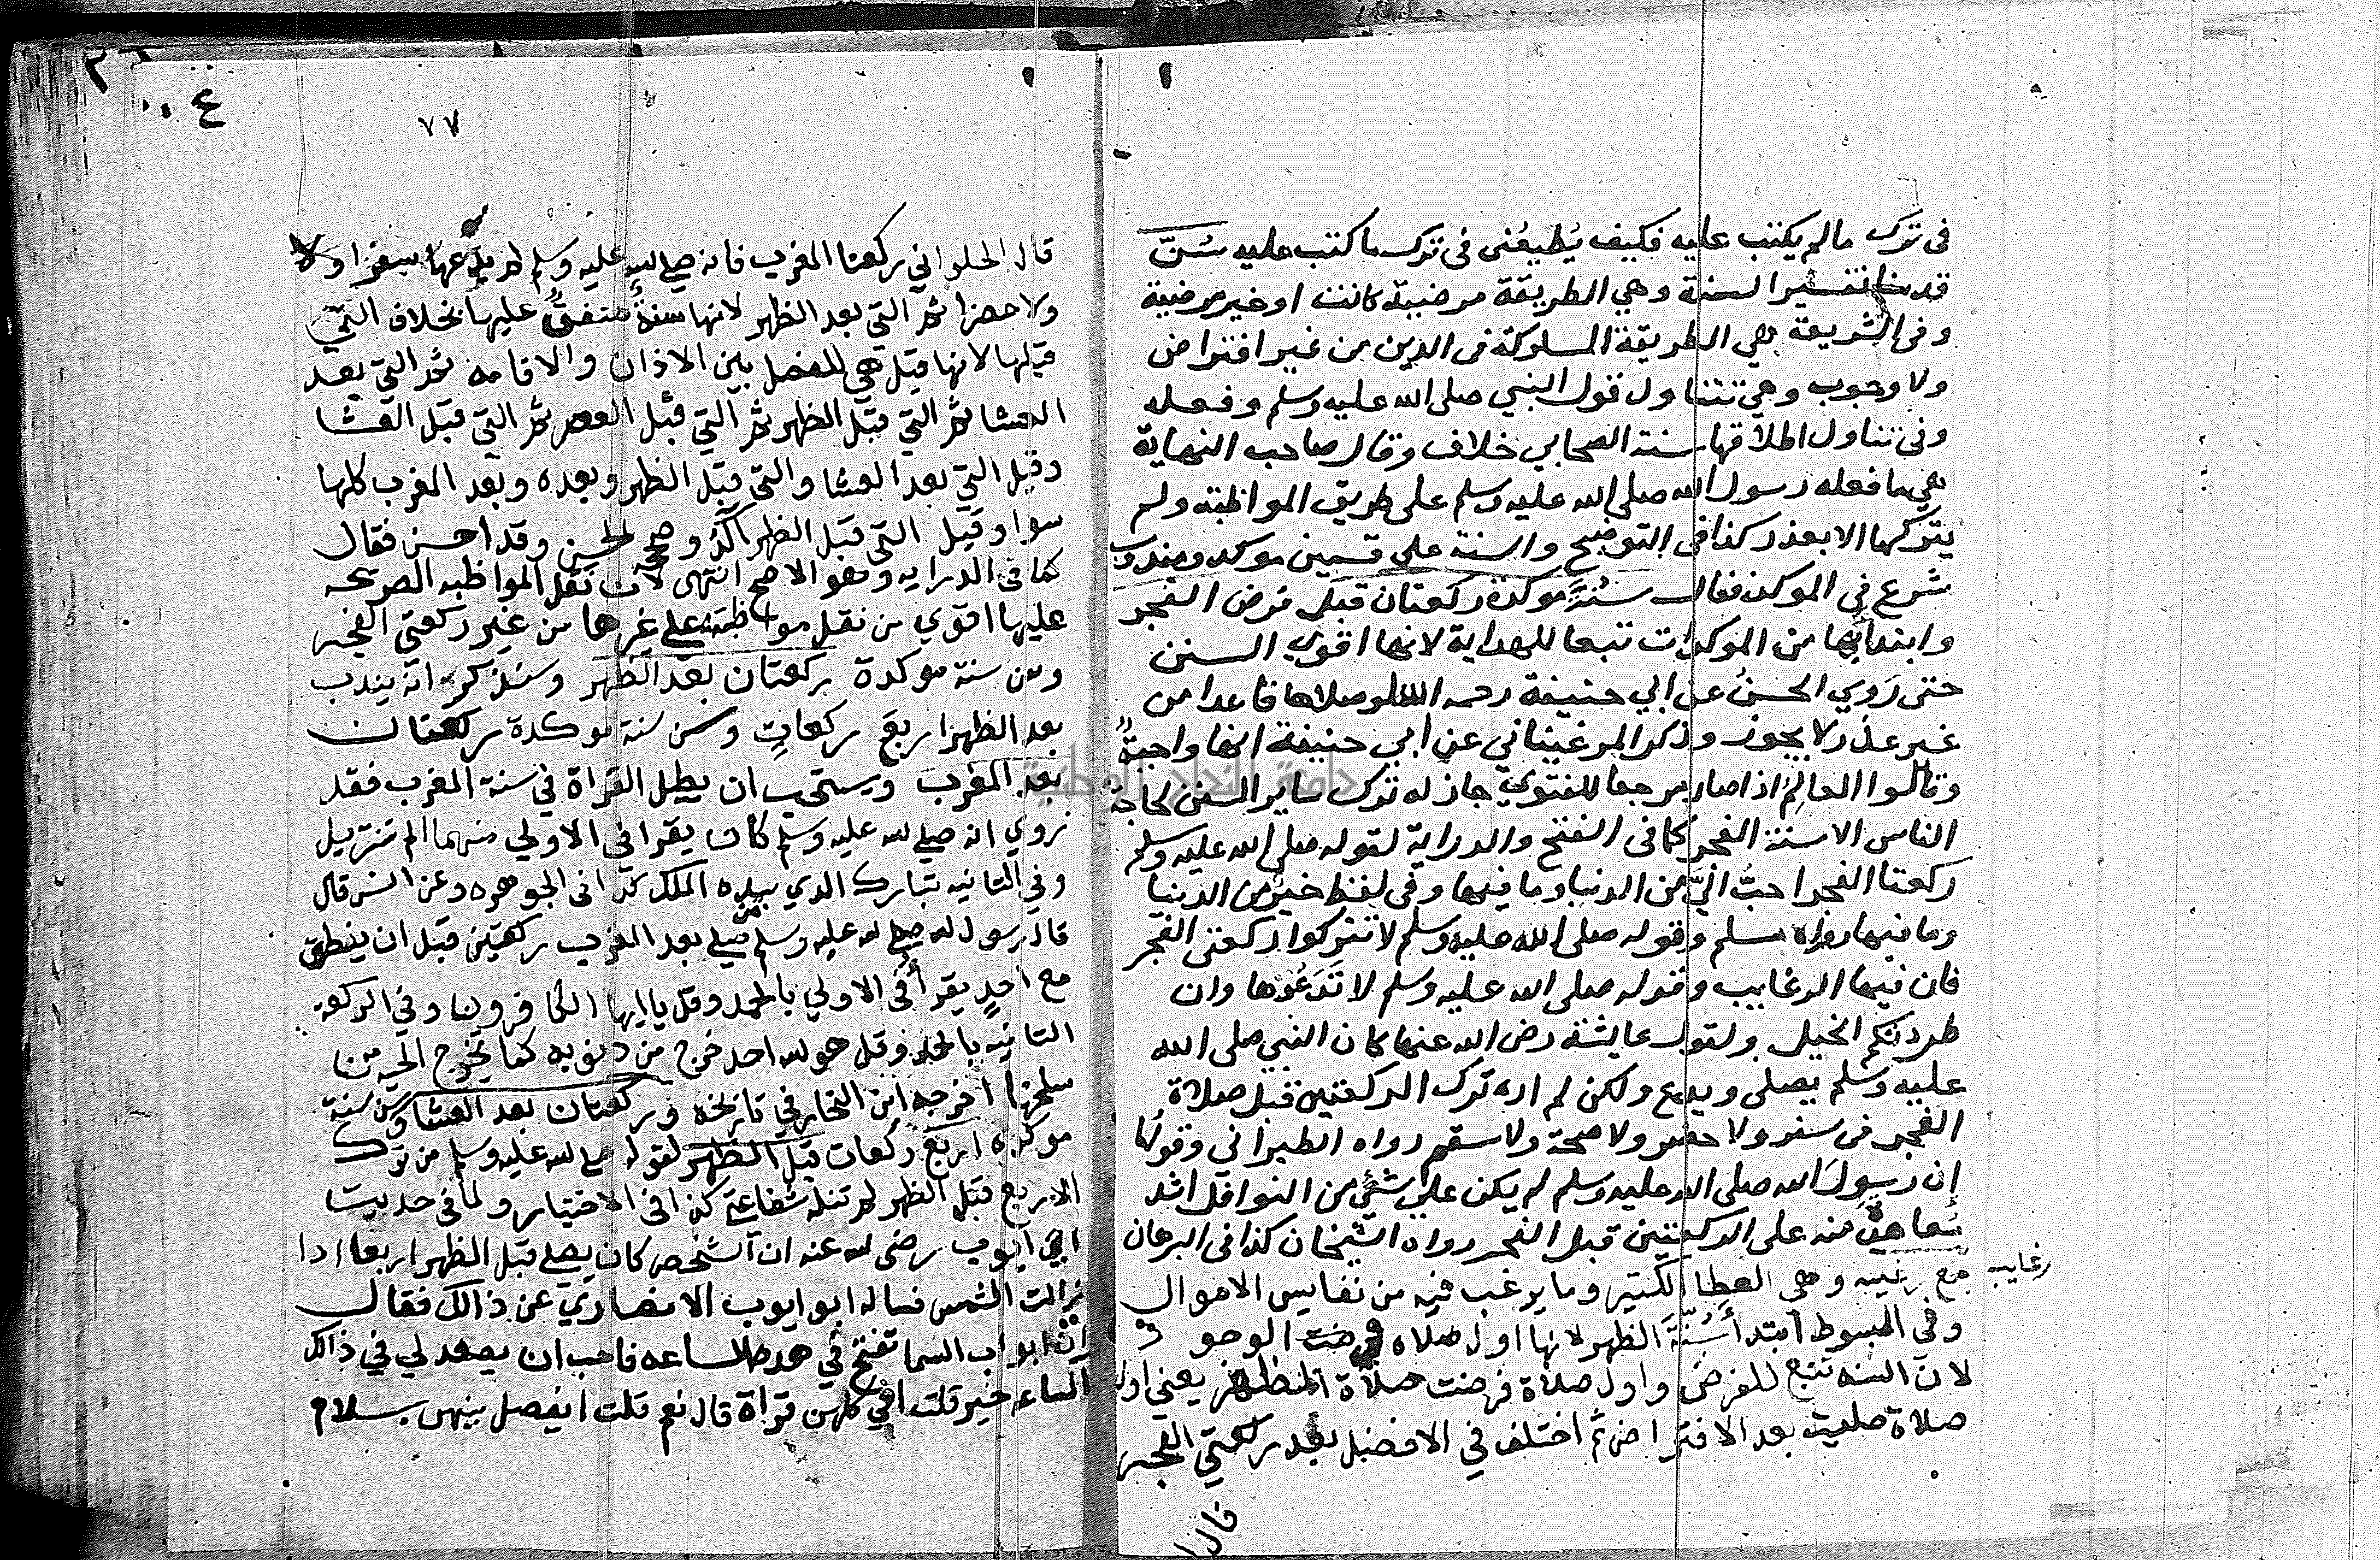 في ترك ما لم يكتب عليه فكيف يُطيعُنى في ترك ما كتب عليه سُنّ
قدمنا تفسير السنة وهي الطريقة مرضية كانت او غير مرضية
وفي الشريعة هي الطريقة المسلوكة في الدين من غير افتراض
ولا وجوب وهي تتناول قول النبي صلى الله عليه وسلم وفعله
وفي تناول اطلاقها سنة الصحابي خلاف وقال صاحب النهاية
هي ما فعله رسول الله صلى الله عليه وسلم على طريق المواظبة ولم
يتركها الا بعذر كذا في التوضيح والسنة على قسمين موكد ومندوب
شرع في الموكدة فقال سُنَّة موكدة ركعتان قبل فرض الفجر
وابتدا بها من الموكدات تبعا للهداية لانها اقوي السنن
حتى رَوي الحسنُ عن ابي حنيفة رحمه الله لو صلاها قاعدا من
غير عذر لا يجوز وذكر المرغيناني عن ابي حنيفة انها واجبةٌ
وقالوا العالِمُ اذا صار مرجعا للفتوي جاز له ترك ساير السنن لحاجة
الناس الا سنة الفجر كما في الفتح والدراية لقوله صلى الله عليه وسلم
ركعتا الفجر احبُّ اليَّ من الدنيا وما فيها وفي لفظ خيرٌ من الدنيا
وما فيها رواه مسلم وقوله صلى الله عليه وسلم لا تتركوا ركعتي الفجر
فان فيها الرغايب وقوله صلى الله عليه وسلم لا تَدَعُوها وان
طردتكم الخيل ولقول عايشة رضي الله عنها كان النبي صلى الله
عليه وسلم يصلي ويدع ولكن لم اره ترك الركعتين قبل صلاة
الفجر في سفر ولا حضر ولا صحة ولا سقم رواه الطبراني وقولها
إن رسولَ الله صلى الله عليه وسلم لم يكن علي شئي من النوافل اشد
تعاهدً منه على الركعتين قبل الفجر رواه الشيخان كذا في البرهان
رغايب جمع رغيبه وهي العطا الكتير وما يرغب فيه من نفايس الاموال
وفي المبسوط ابتدأ بسُنَّة الظهر لانها اول صلاه فرضت الوجو د
لان السنه تتبع للفرض واول صلاة فرضت صلاة الظهر يعني اول
صلاة صليت بعد الافتراض ثم اختلف في الافضل بعد ركعتي الفجر
قال
٧٧
قال الحلواني ركعتا المغرب فانه صلي الله عليه وسلم لم يدعها سفرا ولا
ولا حضرا ثم التي بعد الظهر لانها سنةٌ متفقٌ عليها بخلاف التي
قبلها لانها قيل هي للفصل بين الاذان والاقامه ثم التي بعد
العشا ثم التي قبل الظهر ثم التي قبل العصر ثم التي قبل العشا
وقيل التي بعد العشا والتي قبل الظهر وبعده وبعد المغرب كلها
سوا وقيل التي قبل الظهر آكَدُ وصححه الحسن وقد احسن فقال
كما في الدرايه وهو الاصح انتهى لان نقل المواظبه الصريحه
عليها اقوي من نقل مواظبته علي غيرها من غير ركعتي الفجر
ومن سنة موكدة ركعتان بعد الظهر وسنذكر انه يندب
بعد الظهر اربع ركعاتٍ ومن سنة موكدة ركعتان
بعد المغرب ويستحب ان يطيل القراة في سنة المغرب فقد
روي انه صلي الله عليه وسلم كان يقرا في الاولي منهما الم تنزيل
وفي التانيه تبارك الدي بيده الملك كذا في الجوهره وعن انس قال
قال رسول الله صلي الله عليه وسلم من صلي بعد المغرب ركعتين قبل ان ينطق
مع احدٍ يقرأ في الاولي بالحمد وقل يا ايها الكافرونا وفي الركعة
التانيه بالحمد وقل هو الله احد خرج من دنوبه كما يخرج الحيه من
سلخها اخرجه ابن النجار في تاريخه وركعتان بعد العشا ومن سنة
موكده اربع ركعات قبل الظهر لقوله صلي الله عليه وسلم من ترك
الاربع قبل الظهر لم تنله شفاعتي كذا في الاختيار ولما في حديت
ابي ايوب رضي الله عنه ان الشخص كان يصلي قبل الظهر اربعا ادا
زالت الشمس فساله ابو ايوب الانصاري عن ذالك فقال
ان ابواب السما تفتح في هده الساعه فاحب ان يصعد لي في ذالك
الساعه خير قلت افي كلهن قراة قال نعم قلت ايفصل بينهن بسلام